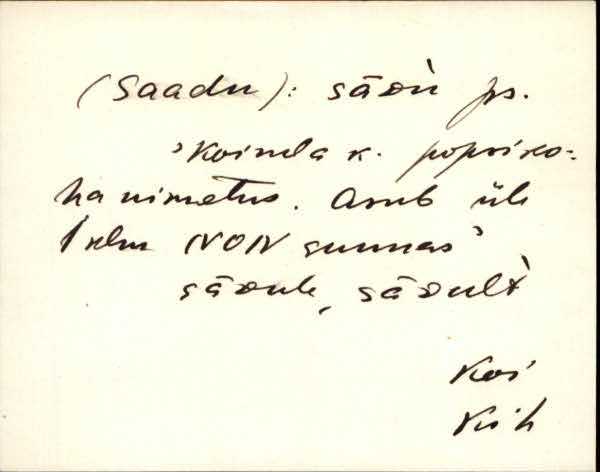 (Saadu): sāᴅù ps.
'Koimla k. popsiko-
ha nimetus. Asub üle
1 klm NON suunas'
sāᴅule, sāᴅult̀
Koi
Kih